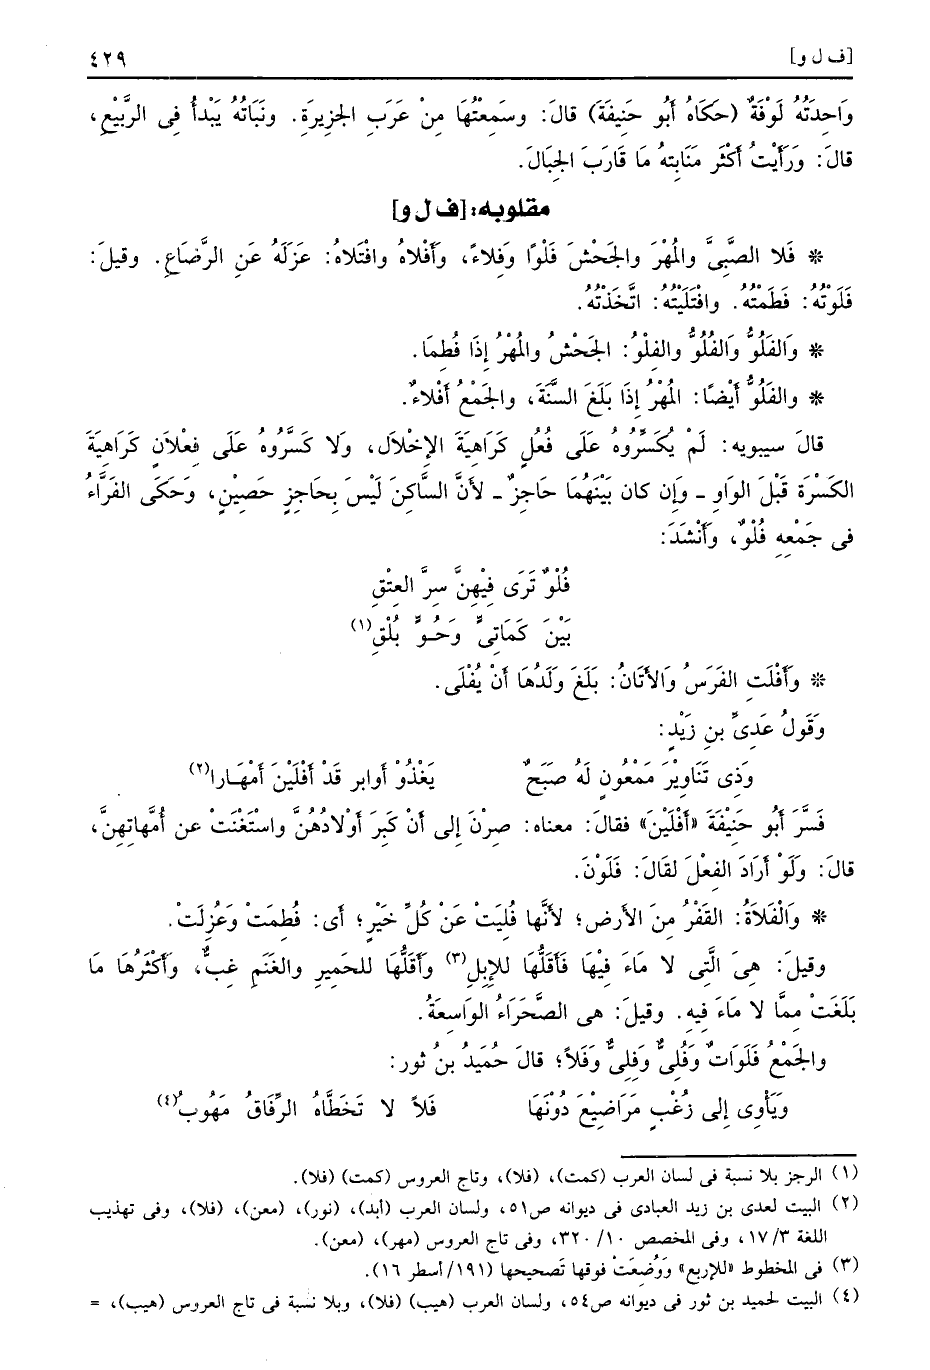 [ف ل و] ٤٢٩
وَاحِدَتُهُ لَوْفَةٌ (حكَاهُ أبُو حَنِيفَةَ) قالَ: وسَمِعْتُهَا مِنْ عَرَبِ الجزِيرَةِ. ونَبَاتُهُ يَبْدأُ فِى الرَّبِيْعِ،
قالَ: وَرَأَيْتُ أكْثَر مَنَابِتِهُ مَا قَارَبَ الجِبَالَ.
مقلوبه: [ف ل و]
* فَلا الصَّبِىَّ والمُهْرَ والجَحْشَ فَلْوًا وَفِلاءً، وَأَفْلاهُ وافْتَلاهُ: عَزَلَهُ عَنِ الرَّضَاعِ. وقيلَ:
فَلَوْتُهُ: فَطَمْتُه. وافْتَلَيْتُهُ: اتَّخَذْتُه.
* وَالفَلُوُّ وَالفُلُوُّ والفِلْوُ: الجَحْشُ والمُهْرُ إذَا فُطِمَا.
* والفَلُوُّ أيْضًا: المُهْرُ إذَا بَلَغَ السَّنَةَ، والجَمْعُ أفْلاءٌ.
قالَ سيبويه: لَمْ يُكَسِّرُوهُ عَلَى فُعُلٍ كَرَاهِيَةَ الإخْلالِ، وَلا كَسَّرُوهُ عَلَى فِعْلانٍ كَرَاهِيَةَ
الكَسْرَة قَبْلَ الوَاوِ - وَإن كان بَيْنَهُمَا حَاجِزٌ - لأنَّ السَّاكِنَ لَيْسَ بِحَاجِزٍ حَصِيْنٍ، وَحَكَى الفَرَّاءُ
فى جَمْعِهِ فُلْوٌ، وَأنْشَدَ:
فُلْوٌ تَرَى فِيْهِنَّ سِرَّ العِتْقِ
بَيْنَ كَمَاتِىٍّ وَحُـوٍّ بُلْقِ(١)
* وَأَفْلَتِ الفَرَسُ وَالأتَانُ: بَلَغَ وَلَدُهَا أنْ يُفْلَى.
وَقَولُ عَدِىِّ بنِ زَيْدٍ:
وَذِى تَنَاوِيْرَ مَمْعُونٍ لَهُ صَبَحٌ يَغْذُوْ أوابِر قَدْ أفْلَيْنَ أمْهَـارا(٢)
فَسَّرَ أبُو حَنِيْفَةَ «أفْلَيْنَ» فقالَ: معناه: صِرْنَ إلى أنْ كَبِرَ أوْلادُهُنَّ واستَغْنَتْ عن أُمَّهاتِهِنَّ،
قالَ: ولَوْ أرَادَ الفِعْلَ لقَالَ: فَلَوْنَ.
* وَالْفَلاَةُ: القَفْرُ مِنَ الأرضِ؛ لأنَّها فُلِيَتْ عَنْ كُلِّ خَيْرٍ؛ أى: فُطِمَتْ وَعُزِلَتْ.
وقيلَ: هِىَ الَّتِى لا مَاءَ فِيْهَا فَأقَلُّهَا للإبِلِ(٣) وَأقَلُّهَا للحَمِيرِ والغَنَمِ غِبٌّ، وَأكْثَرُهَا مَا
بَلَغَتْ مِمَّا لا مَاءَ فِيهِ. وقيلَ: هى الصَّحَرَاءُ الوَاسِعَةُ.
والجَمْعُ فَلَوَاتٌ وَفُلِىٌّ وَفِلِىٌّ وَفَلاً؛ قالَ حُمَيدُ بنُ ثور:
وَيَأوِى إلى زُغْبٍ مَرَاضِيْعَ دُوْنَهَا فَلاً لا تَخَطَّاهُ الرِّفَاقُ مَهُوبُ(٤)
(١) الرجز بلا نسبة فى لسان العرب (كمت)، (فلا)، وتاج العروس (كمت) (فلا).
(٢) البيت لعدى بن زيد العبادى فى ديوانه ص٥١، ولسان العرب (أبد)، (نور)، (معن)، (فلا)، وفى تهذيب
اللغة ١٧/٣، وفى المخصص ٣٢٠/١٠، وفى تاج العروس (مهر)، (معن).
(٣) فى المخطوط «للإربع» وَوُضِعَتْ فوقها تَصحيحها (١٩١/أسطر ١٦).
(٤) البيت لحميد بن ثور فى ديوانه ص٥٤، ولسان العرب (هيب) (فلا)، وبلا نسبة فى تاج العروس (هيب)، =